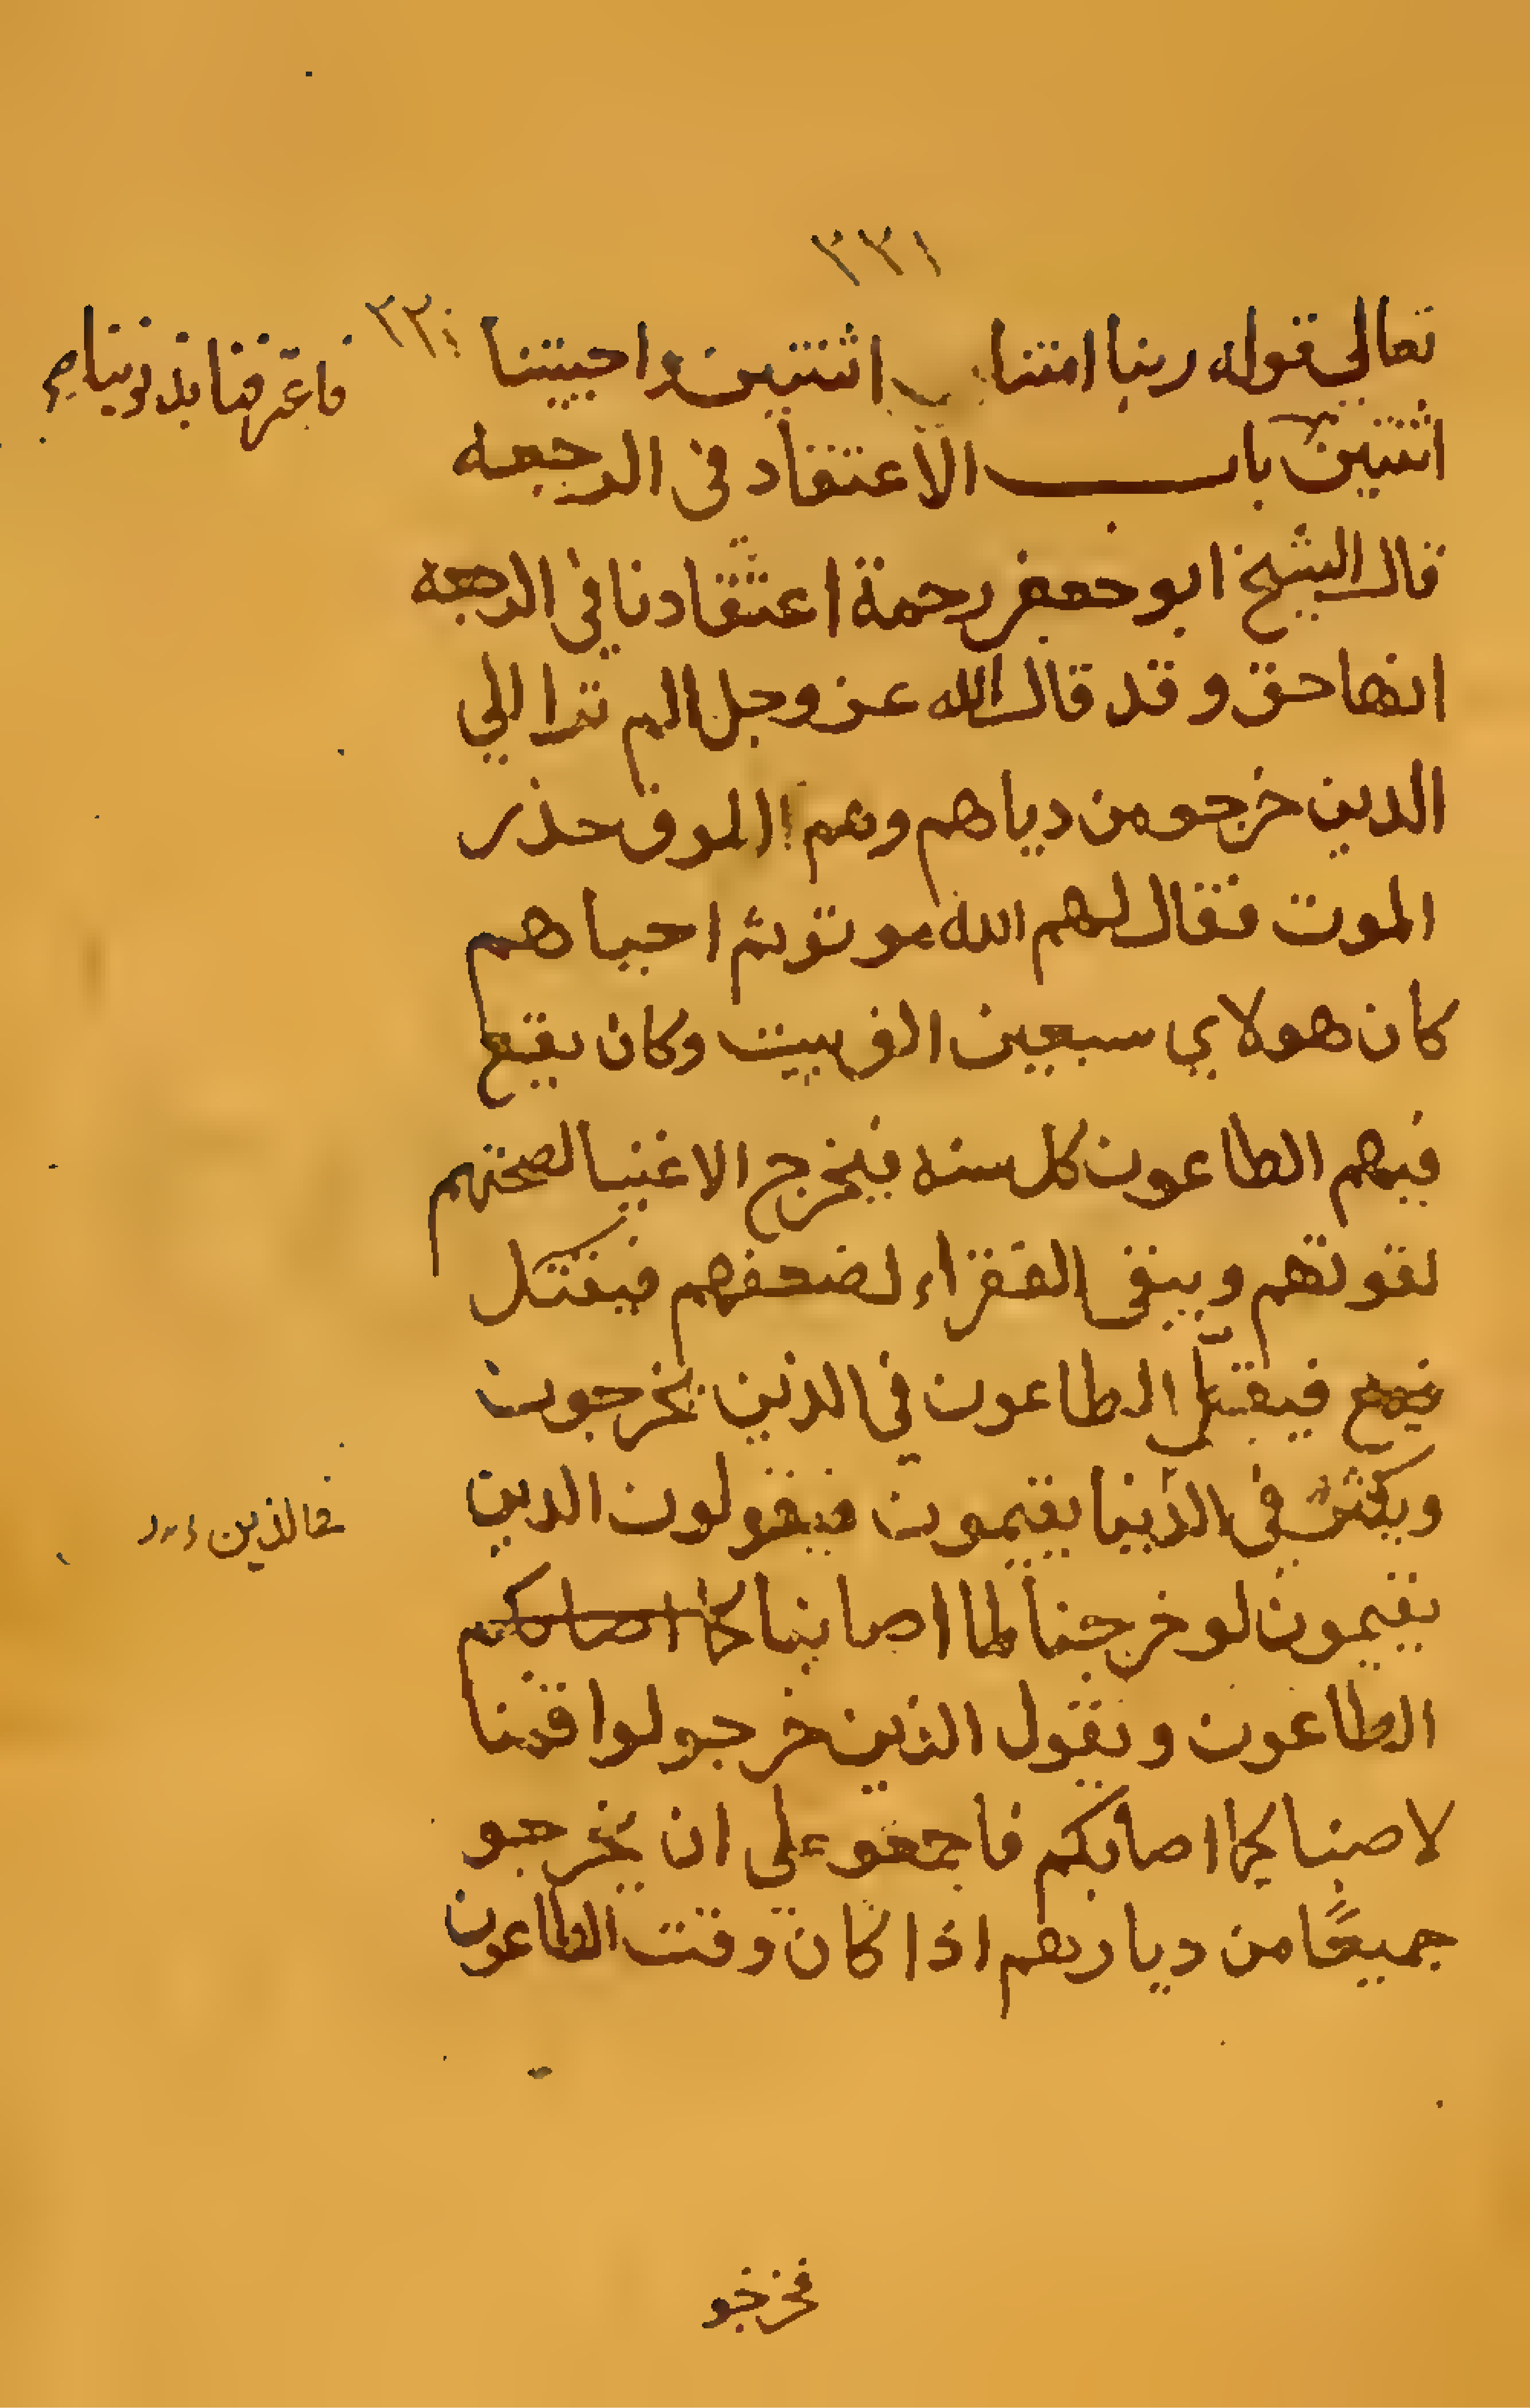 ٣٣١
تعالى قوله ربنا امتنا اثنتين واحييتنا
٣٣٠
فاعترفنا بذنوبنا
اثنتين باب الاعتقاد فى الرجعه
قال الشيخ ابو جعفر رحمة اعتقادنا في الرجعه
انها حق و قد قال الله عز وجل الم ترا الي
الذين خرجو من دياهم وهم الوف حذر
الموت فقال لهم الله موتو ثم احياهم
كان هولاي سبعين الف بيت وكان يقع
فيهم الطاعون كل سنه فيخرج الاغنيا لصحتهم
لقوتهم ويبقى الفقراء لضعفهم فيقتل
فيقتل الطاعون في الذين يخرجون
ويكثر في الذين يقيمون فيقولون الذين
يقيمون لو خرجنا لما اصابنا كما اصابكم
الطاعون ويقول الذين خرجو لوا قمنا
لاصبنا كما اصابكم فاجمعو علي ان يخرجو
جميعًا من ديارهم اذا كان وقت الطاعون
فخرجو